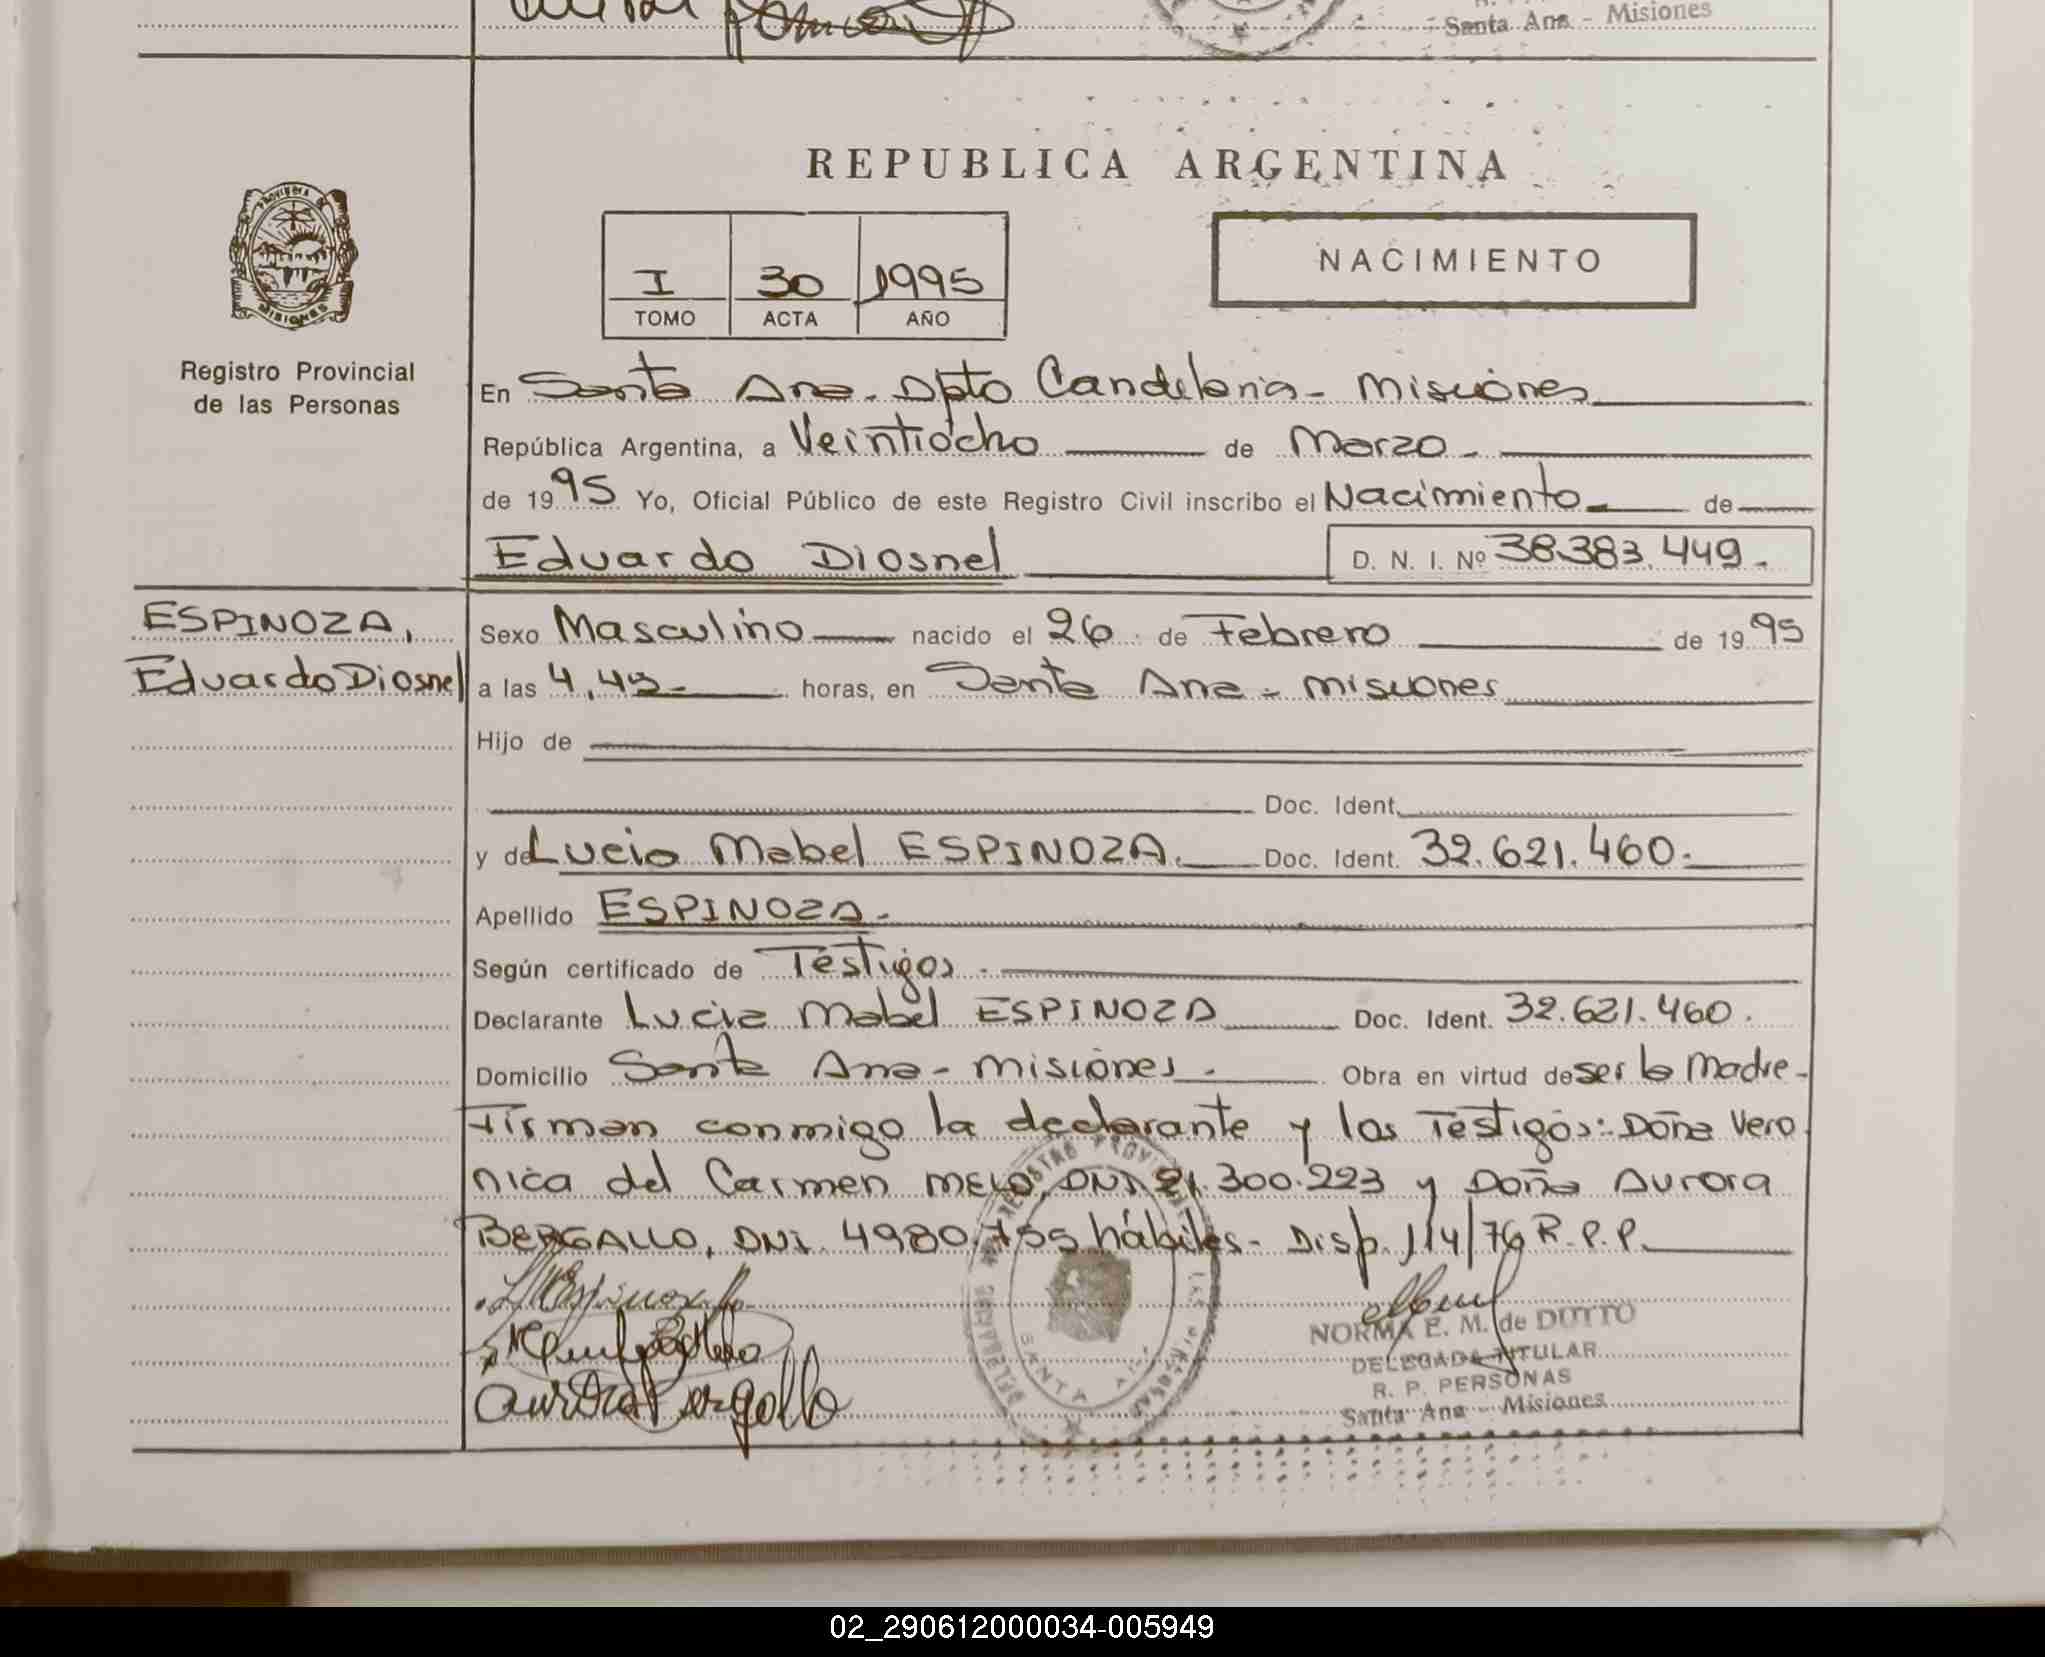 Santa Ana - Misiones
REPUBLICA ARGENTINA
PROVINCIA DE
MISIONES
I 30 1995
TOMO ACTA AÑO
NACIMIENTO
Registro Provincial
de las Personas
En Santa Ana. Dpto Candelaria - Misiones
República Argentina, a Veintiocho de Marzo.
de 1995 Yo, Oficial Público de este Registro Civil inscribo el Nacimiento de
Eduardo Diosnel D. N. I. Nº 38.383.449.
ESPINOZA,
Eduardo Diosnel
Sexo Masculino nacido el 26 de Febrero de 1995
a las 4,45 horas, en Santa Ana - Misiones
Hijo de
Doc. Ident.
y de Lucia Mabel ESPINOZA. Doc. Ident. 32.621.460.
Apellido ESPINOZA.
Según certificado de Testigos.
Declarante Lucia Mabel ESPINOZA Doc. Ident. 32.621.460.
Domicilio Santa Ana - Misiones. Obra en virtud de ser la Madre-
Firman conmigo la declarante y los Testigos: Doña Vero
nica del Carmen MELO, DNI 21.300.223 y Doña Aurora
BERGALLO, DNI. 4980.755 hábiles - Disp. 114/76 R.P.P.
L M Espinoza
Aurora Bergallo
SANTA ANA
NORMA E. M. de DUTTO
DELEGADA TITULAR
R. P. PERSONAS
Santa Ana - Misiones
02_290612000034-005949